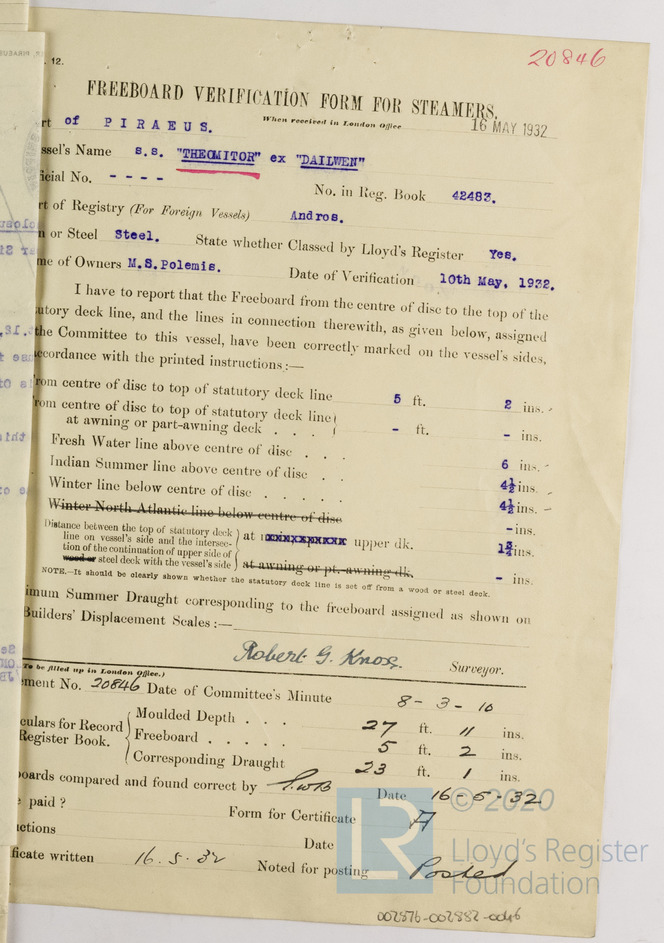 20846
. 12.
FREEBOARD VERIFICATION FORM FOR STEAMERS.
When received in London Office 16 MAY 1932
rt of PIRAEUS.
ssel's Name s.s. "THEOMITOR" ex "DAILWEN"
icial No. - - - -
No. in Reg. Book 42483.
rt of Registry (For Foreign Vessels) Andros.
n or Steel Steel. State whether Classed by Lloyd's Register Yes.
me of Owners M.S.Polemis. Date of Verification 10th May, 1932.
I have to report that the Freeboard from the centre of disc to the top of the
utory deck line, and the lines in connection therewith, as given below, assigned
the Committee to this vessel, have been correctly marked on the vessel's sides,
ccordance with the printed instructions:—
rom centre of disc to top of statutory deck line 5 ft. 2 ins.
rom centre of disc to top of statutory deck line
at awning or part-awning deck . . . - ft. - ins.
Fresh Water line above centre of disc . . . 6 ins.
Indian Summer line above centre of disc . . 4½ ins.
Winter line below centre of disc . . . . . 4½ ins.
Winter North Atlantic line below centre of disc - ins.
Distance between the top of statutory deck
line on vessel's side and the intersec-
tion of the continuation of upper side of
wood or steel deck with the vessel's side
at upper dk. 1¾ ins.
at awning or pt.-awning dk. - ins.
NOTE.—It should be clearly shown whether the statutory deck line is set off from a wood or steel deck.
imum Summer Draught corresponding to the freeboard assigned as shown on
Builders' Displacement Scales:—
Robert G. Knox. Surveyor.
(To be filled up in London Office.)
ment No. 20846 Date of Committee's Minute 8-3-10
culars for Record
Register Book.
Moulded Depth . . . 27 ft. 11 ins.
Freeboard . . . . . 5 ft. 2 ins.
Corresponding Draught 23 ft. 1 ins.
boards compared and found correct by Date 16-5-32
paid? Form for Certificate A
uctions Date
ificate written 16.5.32 Noted for posting Posted
© 2020
LR
Lloyd's Register
Foundation
002876-002882-0046